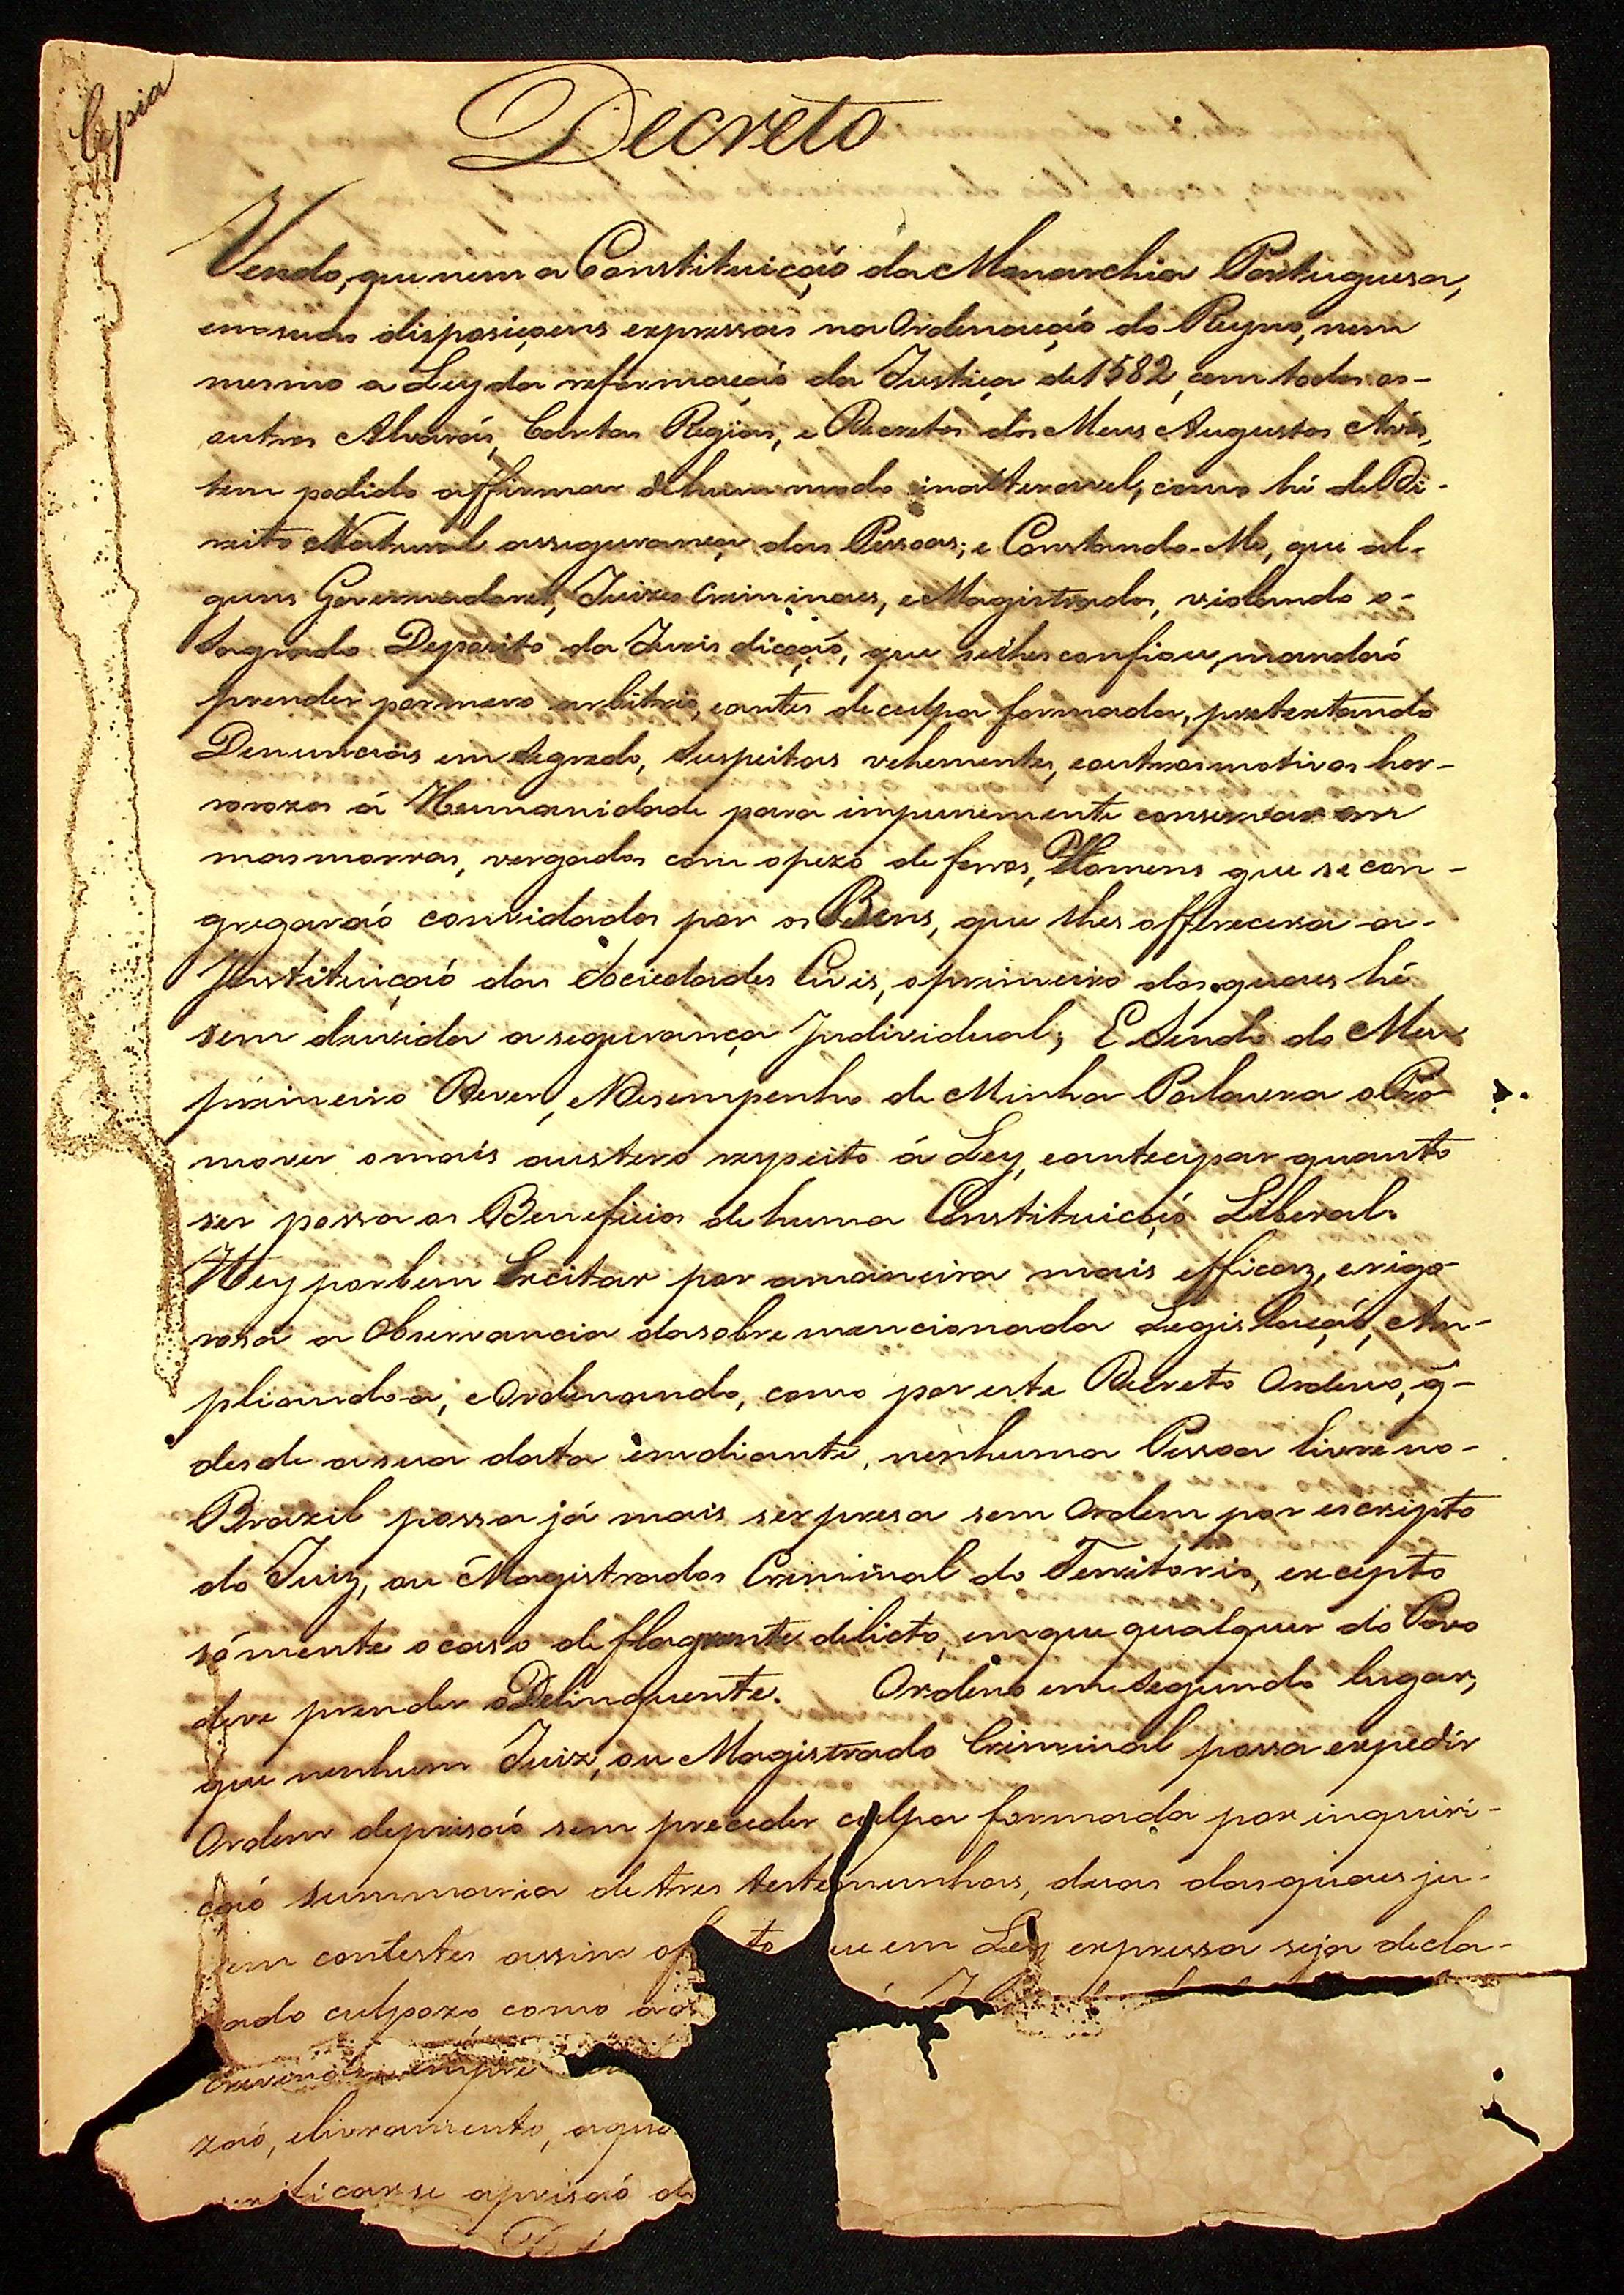 Copia
Decreto
Vendo, que nem a Constituiçaõ da Monarchia Portuguesa,
em suas disposiçoens expressas na Ordenaçaõ do Reyno, nem
mesmo a Ley da reformaçaõ da Justiça de 1582, com todos os-
outros Alvarás, Cartas Regias, e Decretos dos Meus Augustos Avós,
tem podido affirmar de hum modo inalteravel, como hé de Di-
reito Natural a segurança das Pessoas; e Constando-Me, que al-
guns Governadores, Juizes Criminaes, e Magistrados, violando o-
Sagrado Deposito da Jurisdicçaõ, que se lhes confiou, mandaõ
prender por mero arbitrio, e antes de culpa formada, pretextando
Denuncias em segredo, suspeitas vehementes, e outros motivos hor-
rorozos á Humanidade para impunemente conservar em
masmorras, vergados com o pezo de ferros, Homens que se con-
gregaraõ convidados por os Bens, que lhes offerecera a-
Instituiçaõ das Sociedades Civis, o primeiro dos quaes hé
sem duvida a segurança Individual; E Sendo do Meu
primeiro Dever, e Desempenho de Minha Palavra o Pro
mover o mais austero respeito á Ley, e antecipar quanto
ser possa os Beneficios de huma Constituiçaõ Liberal.
Hey por bem Excitar por a maneira mais efficaz, e rigo
rosa a Observancia da sobre mencionada Legislaçaõ, Am-
pliando-a, e Ordenando, como por este Decreto Ordeno, q̃-
desde a sua data em diante, nenhuma Pessoa livre no-
Brazil possa já mais ser presa sem Ordem por escripto
do Juiz, ou Magistrados Criminal do Territorio, excepto
sómente o caso de flagrante delicto, em que qualquer do Povo
deve prender o Delinquente. Ordeno em segundo lugar,
que nenhum Juiz, ou Magistrado Criminal possa expedir
Ordem de prisaõ sem preceder culpa formada por inquiri-
çaõ summaria de tres testemunhas, duas das quaes ju-
em contestes assim o em Ley expressa seja decla-
ado culpozo, como
empre
zaõ, e livramento, a
ficar-se a prisaõ